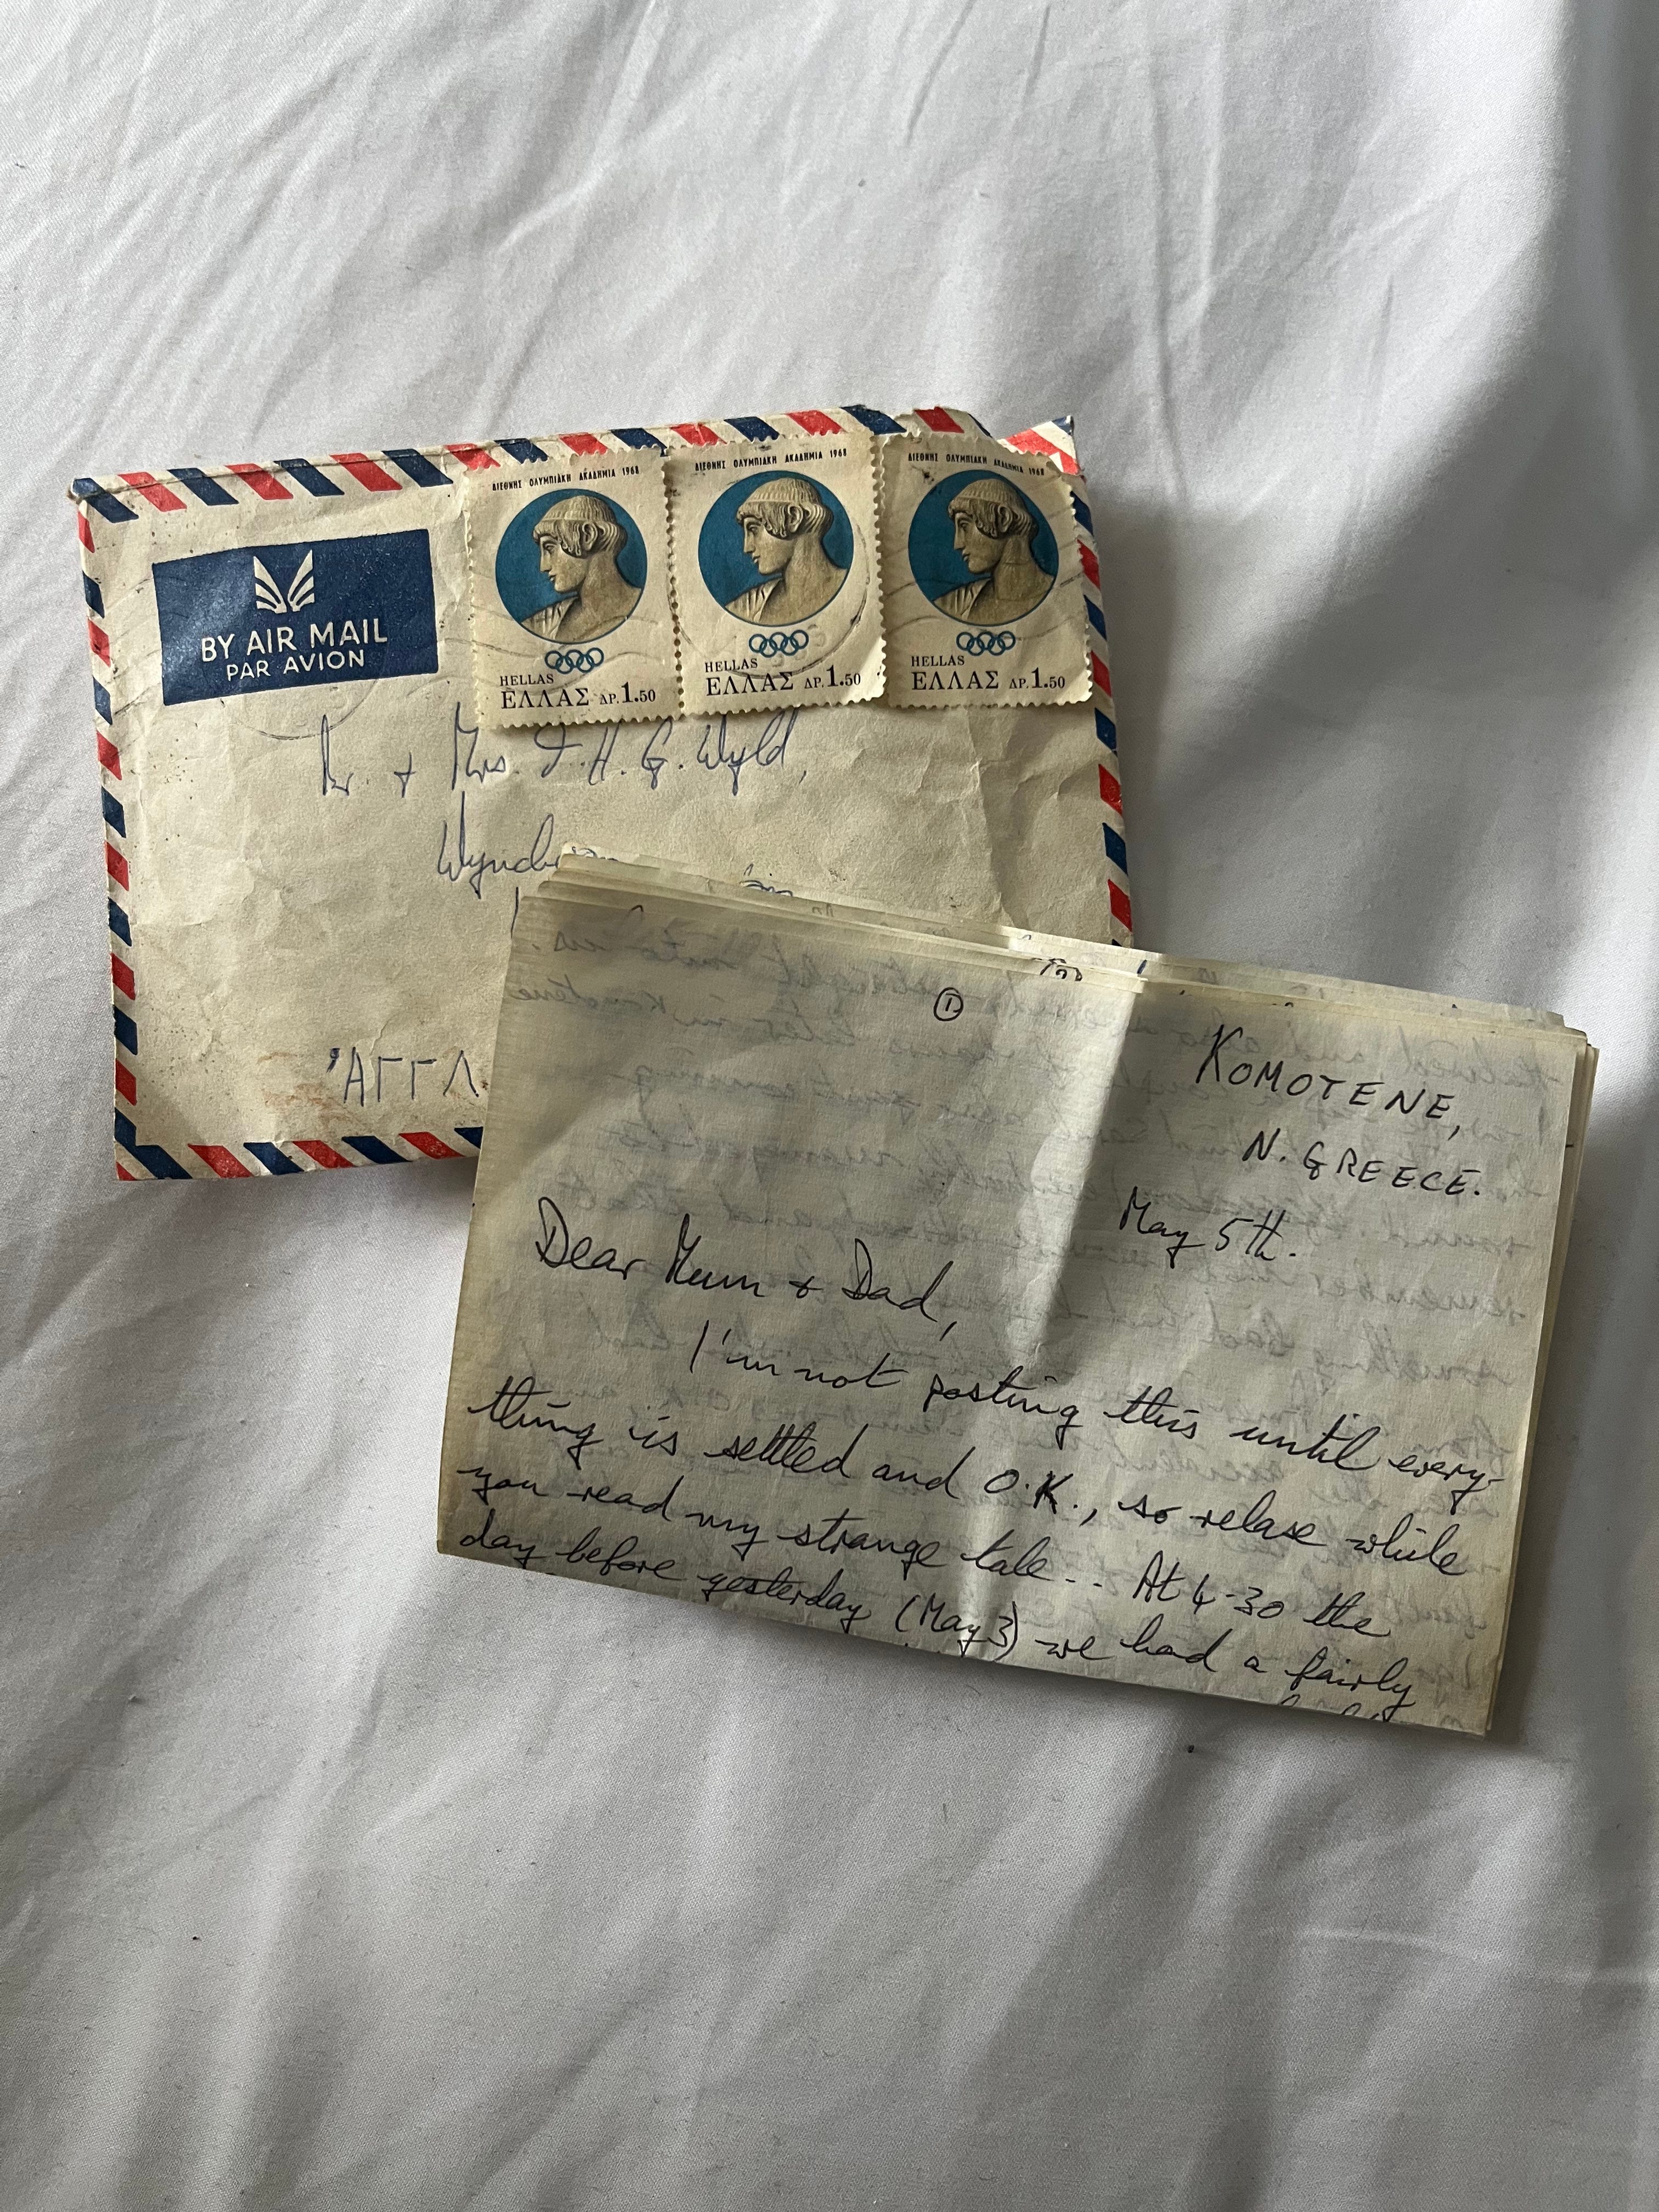 BY AIR MAIL
PAR AVION
ΔΙΕΘΝΗΣ ΟΛΥΜΠΙΑΚΗ ΑΚΑΔΗΜΙΑ 1968
HELLAS
ΕΛΛΑΣ ΔΡ. 1.50
ΔΙΕΘΝΗΣ ΟΛΥΜΠΙΑΚΗ ΑΚΑΔΗΜΙΑ 1968
HELLAS
ΕΛΛΑΣ ΔΡ. 1.50
ΔΙΕΘΝΗΣ ΟΛΥΜΠΙΑΚΗ ΑΚΑΔΗΜΙΑ 1968
HELLAS
ΕΛΛΑΣ ΔΡ. 1.50
+ Mrs. H. G. Wyld,
'ΑΓΓΛ
1
KOMOTENE,
N. GREECE.
May 5th.
Dear Mum + Dad,
I'm not posting this until every-
thing is settled and O.K., so relase while
you read my strange tale.. At 4-30 the
day before yesterday (May 3) we had a fairly